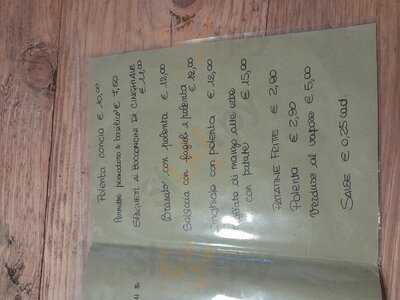 Polenta concia € 10,00
Pennette pomodoro e basilico € 7,50
SPAGHETTI AI BOCCONCINI DI CINGHIALE
€ 11,00
Brasato con polenta € 12,00
Salsiccia con fagioli e polenta
€ 12,00
con polenta € 12,00
di manzo alle erbe
con patate € 15,00
PATATINE FRITTE € 2,90
Polenta € 2,90
Verdure al vapore € 5,00
SALSE € 0,25 cad